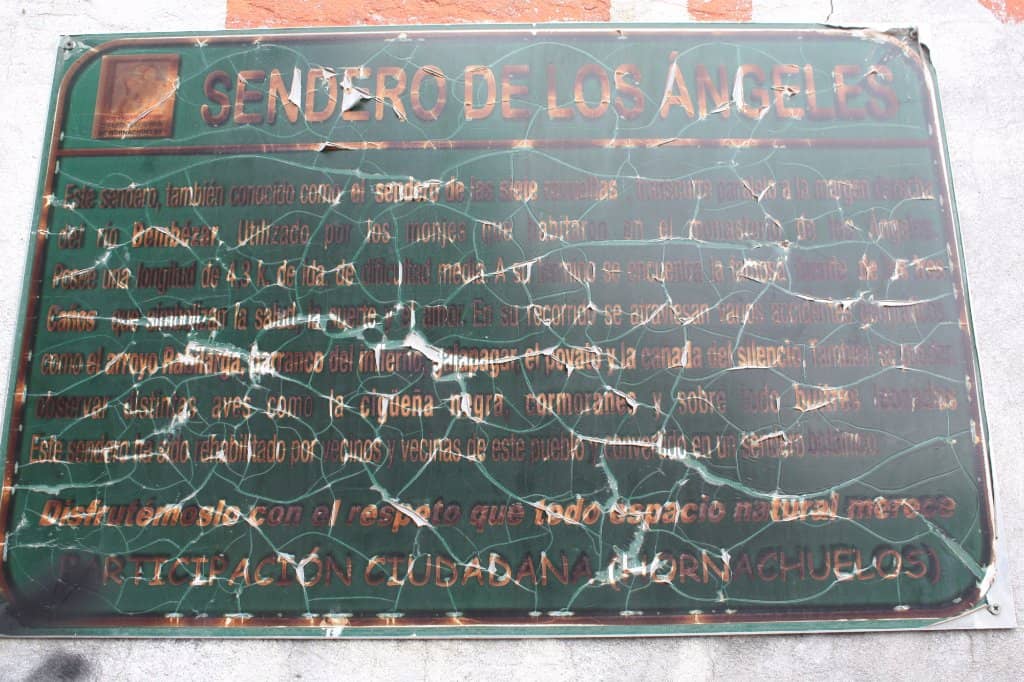 SENDERO DE LOS ÁNGELES
Este sendero, también conocido como el sendero de las siete revueltas transcurre paralelo a la margen derecha
del río Bembézar. Utilizado por los monjes que habitaron en el monasterio de los Ángeles.
Posee una longitud de 4,3 k. de ida, de dificultad media. A su término se encuentra la famosa fuente de los tres
Caños que simbolizan la salud, la suerte y el amor. En su recorrido se atraviesan varios accidentes geográficos
como el arroyo Rabilarga, barranco del infierno, y la cañada del silencio. También se pueden
observar distintas aves como la cigüeña negra, cormoranes y sobre todo buitres leonados
Este sendero ha sido rehabilitado por vecinos y vecinas de este pueblo y convertido en un sendero botánico
Disfrutémoslo con el respeto que todo espacio natural merece
PARTICIPACIÓN CIUDADANA (HORNACHUELOS)